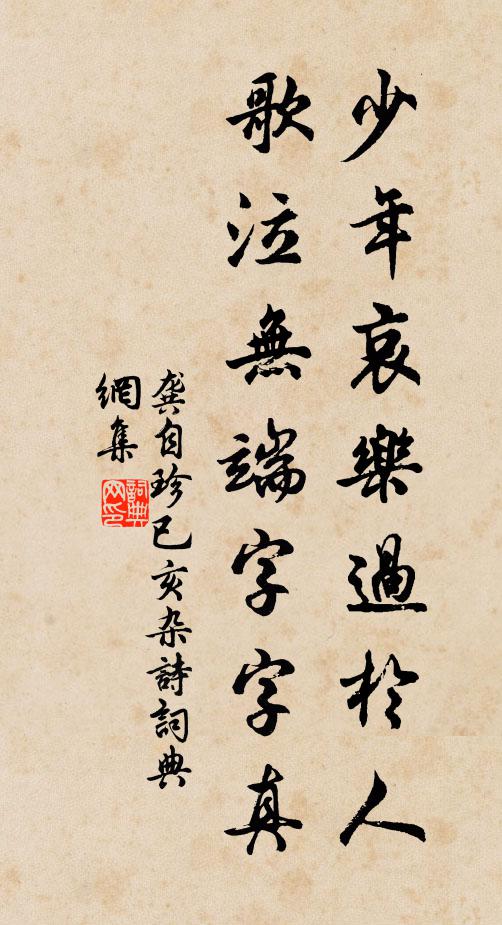 少年哀樂過於人
歌泣無端字字真
龔自珍己亥杂詩詞典
網集
詞典網印